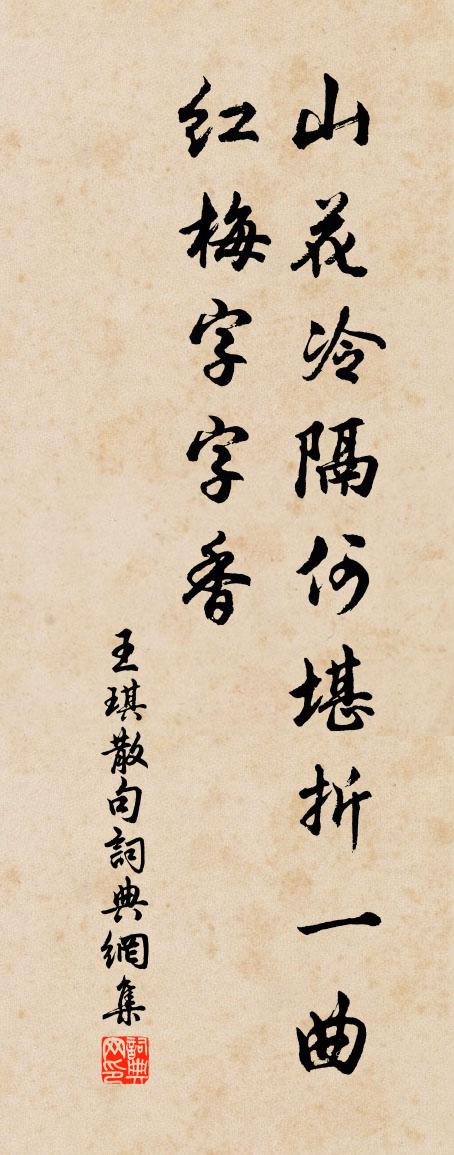 山花冷隔何堪折一曲
红梅字字香
王琪散句詞典網集
詞典网印